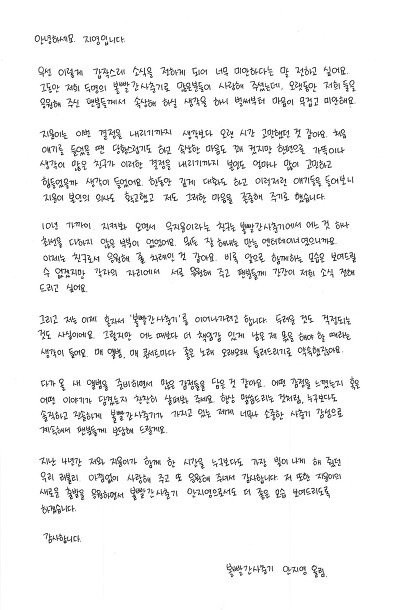 안녕하세요. 지영입니다.
우선 이렇게 갑작스레 소식을 전하게 되어 너무 미안하다는 말 전하고 싶어요.
그동안 저희 두명의 볼빨간사춘기로 많은분들이 사랑해 주셨는데, 오랫동안 저희 둘을
응원해 주신 팬분들께서 속상해 하실 생각을 하니 벌써부터 마음이 무겁고 미안해요.
지윤이는 이번 결정을 내리기까지 생각보다 오랜 시간 고민했던 것 같아요. 처음
얘기를 들었을 땐 당황스럽기도 하고 속상한 마음도 꽤 컸지만 한편으로 가뜩이나
생각이 많은 친구가 이러한 결정을 내리기까지 본인도 얼마나 많이 고민하고
힘들었을까 생각이 들었어요. 한동안 깊게 대화도 하고 이런저런 얘기들을 들어보니
지윤이 본인의 의사도 확고했고 저도 그러한 마음을 존중해 주기로 했습니다.
10년 가까이 지켜봐 오면서 우지윤이라는 친구는 볼빨간사춘기에서 어느 것 하나
최선을 다하지 않은 부분이 없었어요. 뭐든 잘 해내는 만능 엔터테이너였으니까요.
이제는 친구로서 응원해 줄 차례인 것 같아요. 비록 앞으로 함께하는 모습을 보여드릴
수 없겠지만 각자의 자리에서 서로 응원해 주고 팬분들께 간간이 저희 소식 전해
드리고 싶어요.
그리고 저는 이제 혼자서 '볼빨간사춘기'를 이어나가려고 합니다. 두려울 것도 걱정되는
것도 사실이에요. 그렇지만 어느 때보다 더 책임감 있게 남은 제 몫을 해야 할 때라는
생각이 들어요. 매 앨범, 매 콘서트마다 좋은 노래 오래오래 들려드리기로 약속했잖아요.
다가 올 내 앨범을 준비하면서 많은 감정들을 담은 것 같아요. 어떤 감정을 느꼈는지 혹은
어떤 이야기가 담겼는지 찬찬히 살펴봐 주세요. 항상 말씀드리는 것처럼, 누구보다도
솔직하고 진솔하게 볼빨간사춘기가 가지고 있는 제게 너무나 소중한 사춘기 감성으로
계속해서 팬분들께 보답해 드릴게요.
지난 4년간 저와 지윤이가 함께 한 시간을 누구보다도 가장 빛이 나게 해 줬던
우리 러블리 아낌없이 사랑해 주고 또 응원해 주셔서 감사합니다. 저 또한 지윤이의
새로운 출발을 응원하면서 볼빨간사춘기 안지영으로서도 더 좋은 모습 보여드리도록
하겠습니다.
감사합니다.
볼빨간사춘기 안지영 올림.